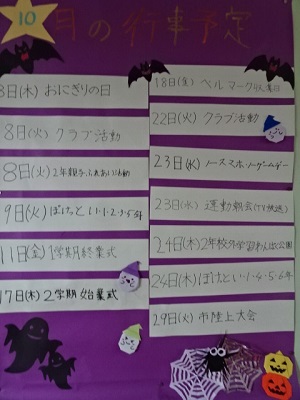 10月の行事予定
3日(木) おにぎりの日
8日(火) クラブ活動
8日(火) 2年親子ふれあい活動
9日(火) ぽけっと 1・1・2・3・5・6年
11日(金) 1学期終業式
17日(木) 2学期始業式
18日(金) ベルマーク収集日
22日(火) クラブ活動
23日(水) ノースマホ・ノーゲームデー
23日(水) 運動朝会(TV放送)
24日(木) 2年校外学習わんぱく公園
24日(木) ぽけっと 1・1・4・5・6年
29日(火) 市陸上大会